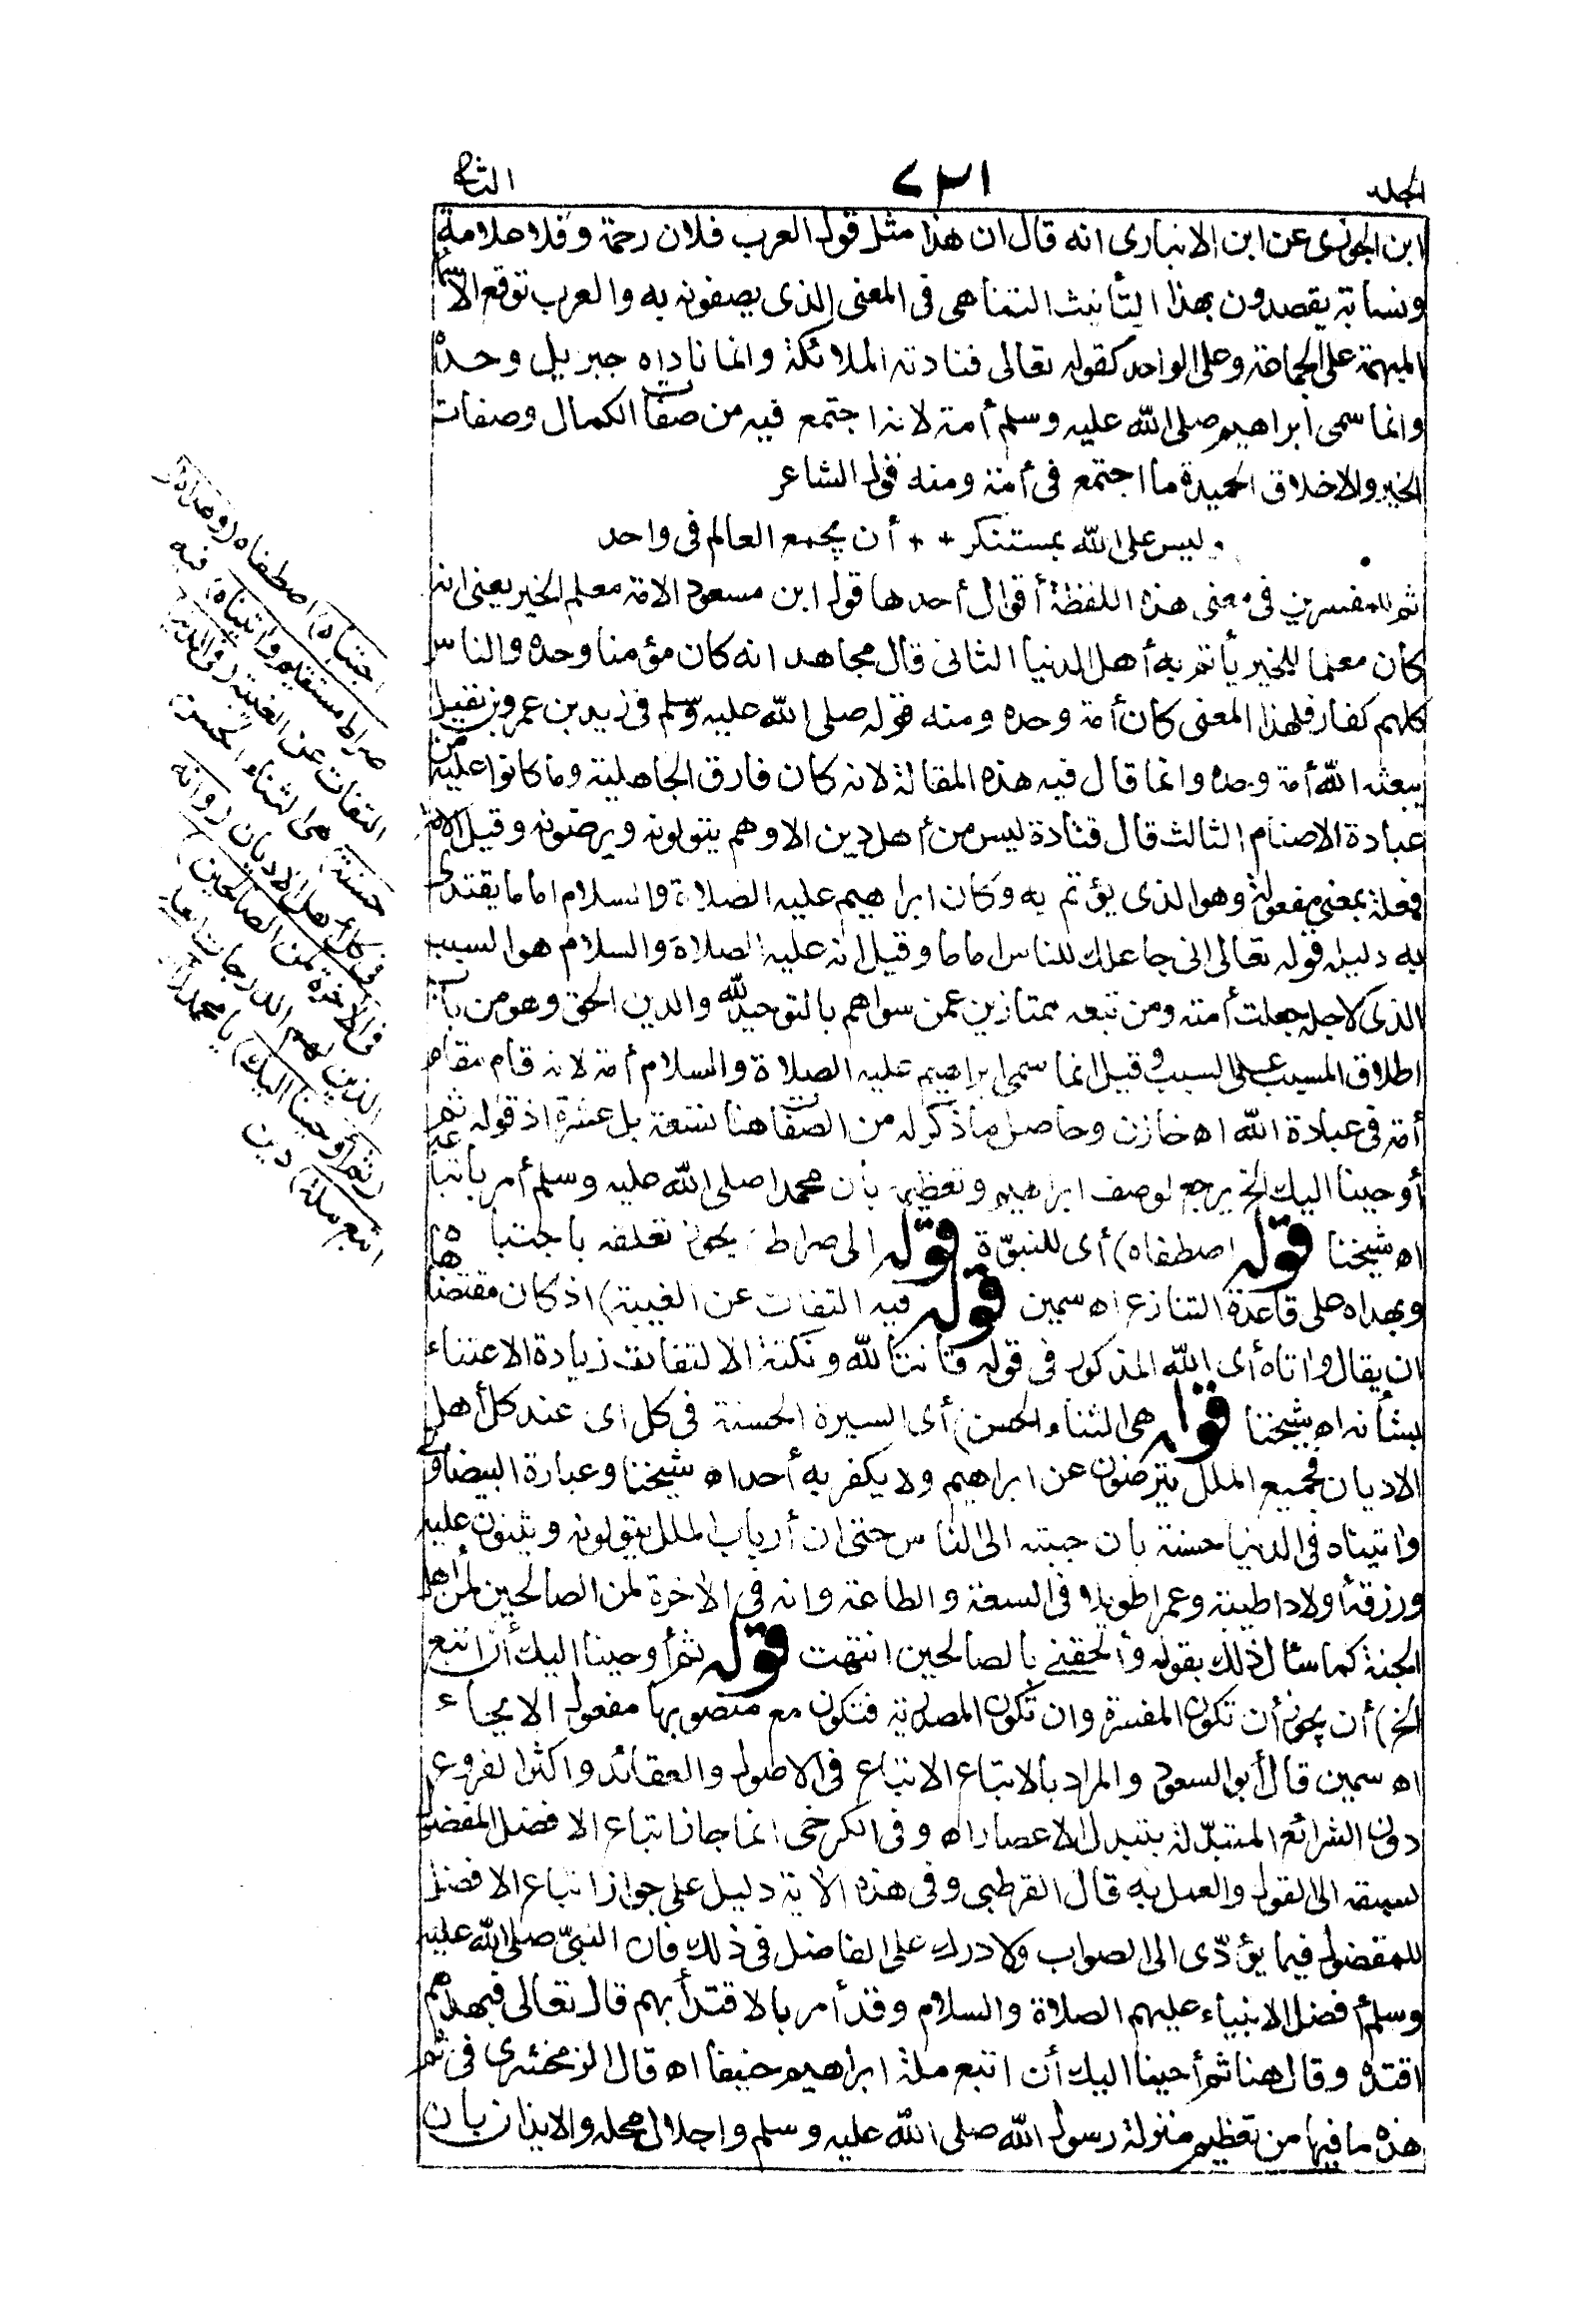 المجلد
٧٣١
الثانى
ابن الجوزى عن ابن الانبارى انه قال ان هذا مثل قول العرب فلان رحمة وفلا علامة
ونسابة يقصدون بهذا التأنيث التناهى فى المعنى الذى يصفونه به والعرب توقع الاسما
المبهمة على الجماعة وعلى الواحد كقوله تعالى فنادته الملائكة وانما ناداه جبريل وحده
وانما سمى ابراهيم صلى الله عليه وسلم أمة لانه اجتمع فيه من صفات الكمال وصفات
الخير والاخلاق الحميدة ما اجتمع فى أمة ومنه قول الشاعر
وليس على الله بمستنكر ++ أن يجمع العالم فى واحد
ثم للمفسرين فى معنى هذه اللفظة أقوال أحدها قول ابن مسعود الامة معلم الخير يعنى انه
كان معلما للخير يأتم به أهل الدنيا الثانى قال مجاهد انه كان مؤمنا وحده والناس
كلهم كفار فلهذا المعنى كان أمة وحده ومنه قوله صلى الله عليه وسلم فى زيد بن عمرو بن نفيل
يبعثه الله أمة وحده وانما قال فيه هذه المقالة لانه كان فارق الجاهلية وما كانوا عليه من
عبادة الاصنام الثالث قال قتادة ليس من أهل دين الا وهم يتولونه ويرضونه وقيل الامة
فعلة بمعنى مفعولة وهو الذى يؤتم به وكان ابراهيم عليه الصلاة والسلام اماما يقتدى
به دليله قوله تعالى انى جاعلك للناس اماما وقيل انه عليه الصلاة والسلام هو السبب
الذى لاجله جعلت أمته ومن تبعه ممتازين عمن سواهم بالتوحيد لله والدين الحق وهو من باب
اطلاق المسبب على السبب وقيل انما سمى ابراهيم عليه الصلاة والسلام أمة لانه قام مقام
أمة فى عبادة الله اه خازن وحاصل ما ذكر له من الصفات هنا تسعة بل عشرة اذ قوله ثم
أوحينا اليك الخ يرجع لوصف ابراهيم وتعظيمه بأن محمدا صلى الله عليه وسلم أمر باتباعه
اه شيخنا قوله اصطفاه) أى للنبوّة قوله الى صراط) يجوز تعلقه باجتباه
وبهداه على قاعدة التنازع اه سمين قوله فيه التفات عن الغيبة) اذ كان مقتضاها
ان يقال واتاه أى الله المذكور فى قوله قانتا لله ونكتة الالتفات زيادة الاعتناء
بشأنه اه شيخنا قوله هى الثناء الحسن) أى السيرة الحسنة فى كل اى عند كل أهل
الاديان فجميع الملل يترضون عن ابراهيم ولا يكفر به أحد اه شيخنا وعبارة البيضاوى
واتيناه فى الدنيا حسنة بان حببه الى الناس حتى ان أرباب الملل يتولونه ويثنون عليه
ورزقه أولادا طيبة وعمرا طويلا فى السعة والطاعة وانه فى الآخرة لمن الصالحين لمن أهل
الجنة كما سأل ذلك بقوله وألحقنى بالصالحين انتهت قوله ثم أوحينا اليك أن اتبع
الخ) أن يجوز أن تكون المفسرة وان تكون المصدرية فتكون مع منصوبها مفعول الايحاء
اه سمين قال أبو السعود والمراد بالاتباع الاتباع فى الاصول والعقائد واكثر الفروع
دون الشرائع المتبدّلة بتبدل الاعصار اه وفى الكرخى انما جاز اتباع الافضل المفضول
لسبقه الى القول والعمل به قال القرطبى وفى هذه الآية دليل على جواز اتباع الافضل
للمفضول فيما يؤدّى الى الصواب ولا درك على الفاضل فى ذلك فان النبىّ صلى الله عليه
وسلم أفضل الانبياء عليهم الصلاة والسلام وقد أمر بالاقتدأ بهم قال تعالى فبهداهم
اقتده وقال هنا ثم أحينا اليك أن اتبع ملة ابراهيم حنيفا اه قال الزمخشرى فى ثم
هذه ما فيها من تعظيم منزلة رسول الله صلى الله عليه وسلم واجلال محله والايذان بان
اجتباه) اصطفاه (وهداه الى
صراط مستقيم واتيناه) فيه
التفات عن الغيبة (فى الدنيا
حسنة) هى الثناء الحسن
فى كل أهل الاديان (وانه
فى الآخرة لمن الصالحين)
الذين لهم الدرجات العلى
(ثم أوحينا اليك) يا محمد (أن
اتبع ملة) دين